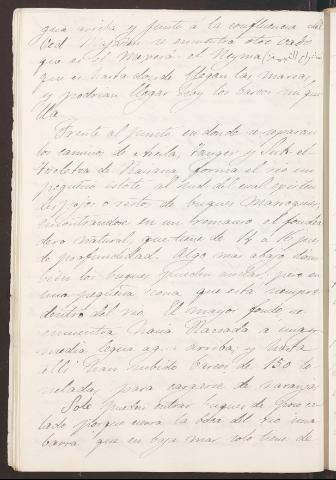 gua arriba y junto á la confluencia del
Ued se encuentra otro vado
que es el Mexera el Neyma
que es hasta donde llegan las mareas
y podrian llegar hoy los barcos sin qui
lla.
Frente al punto en donde se separan
los caminos de Arcila, Tanger y Suk el
de Raisana forma el rio un
pequeño islote, al Sud del cual existen
despojos ó restos de buques Marroquies,
encontrandose en un remanso el fondea
dero natural que tiene de 14 á 16 pies
de profundidad. Algo mas abajo tam
bien los buques pueden anclar, pero en
una pequeña zona que está siempre
dentro del rio. El mayor fondo se
encuentra hacia Raccada a una y
media legua agua arriba y hasta
alli han subido barcos de 150 to
neladas para cargarse de naranjas.
Solo pueden entrar buques de poco ca
lado porque cierra la boca del rio una
barra que en baja mar solo tiene de